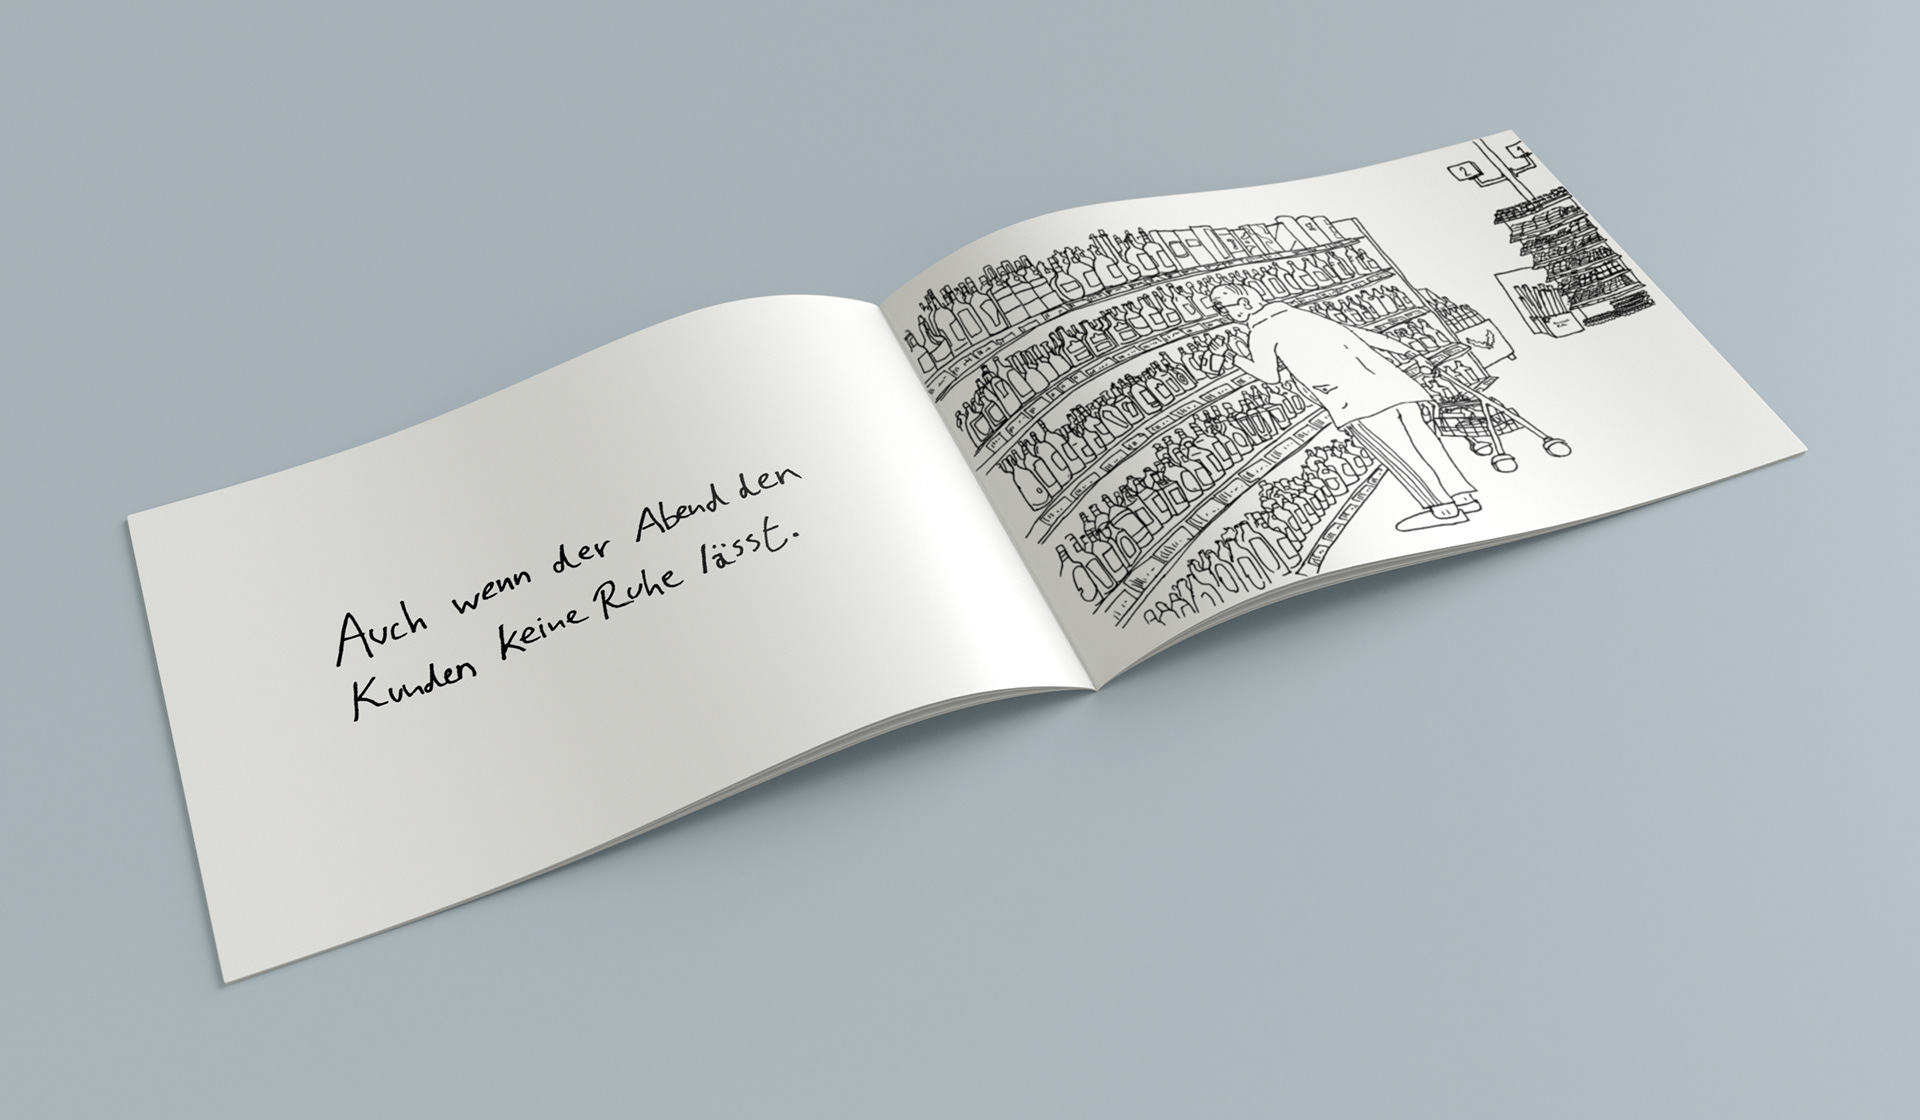 Auch wenn der Abend den
Kunden keine Ruhe lässt.
2
1